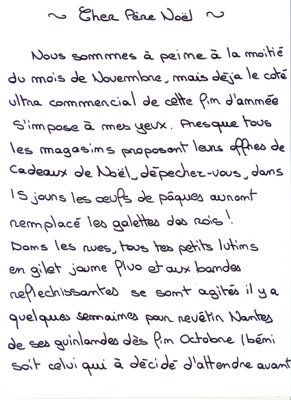 ~ Cher Père Noël ~
Nous sommes à peine à la moitié
du mois de Novembre, mais déja le coté
ultra commercial de cette fin d'année
S'impose à mes yeux. Presque tous
les magasins proposent leurs offres de
Cadeaux de Noël, dépechez-vous, dans
15 jours les oeufs de pâques auront
remplacé les galettes des rois !
Dans les rues, tous tes petits lutins
en gilet jaune fluo et aux bandes
reflechissantes se sont agités il y a
quelques semaines pour revêtir Nantes
de ses guirlandes dès fin Octobre (béni
soit celui qui à décidé d'attendre avant